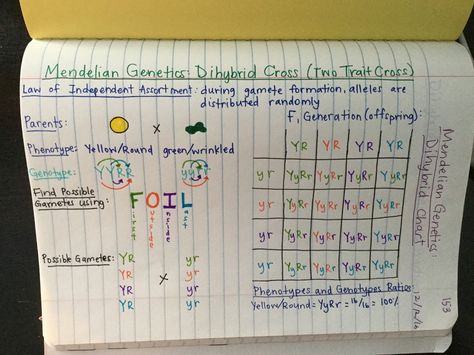 Mendelian Genetics: Dihybrid Cross (Two Trait Cross)
Law of Independent Assortment: during gamete formation, alleles are
distributed randomly
Parents:
x
Phenotype: Yellow/Round green/wrinkled
Genotype: YYRR yyrr
Find Possible
Gametes using:
FOIL
First
Outside
Inside
Last
Possible Gametes:
YR yr
YR yr
x
YR yr
YR yr
F1 Generation (offspring):
YR YR YR YR
yr YyRr YyRr YyRr YyRr
yr YyRr YyRr YyRr YyRr
yr YyRr YyRr YyRr YyRr
yr YyRr YyRr YyRr YyRr
Phenotypes and Genotypes Ratios:
Yellow/Round = YyRr = 16/16 = 100%
Mendelian Genetics
Dihybrid Chart
153